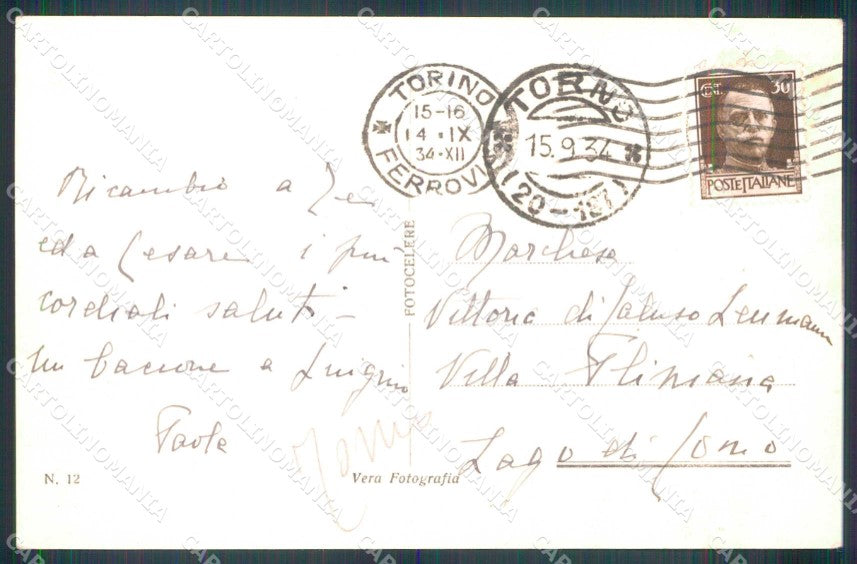 TORINO
15-16
14·IX
34·XII
FERROVI
TORNO
15.9.34
(20-197)
CENT. 30
POSTE ITALIANE
Ricambio a Te
ed a Cesare i più
cordiali saluti –
un bacione a Luigino
Paola
FOTOCELERE
Marchesa
Vittoria di Saluzzo Leumann
Villa Pliniana
Lago di Como
N. 12
Vera Fotografia
CARTOLINOMANIA